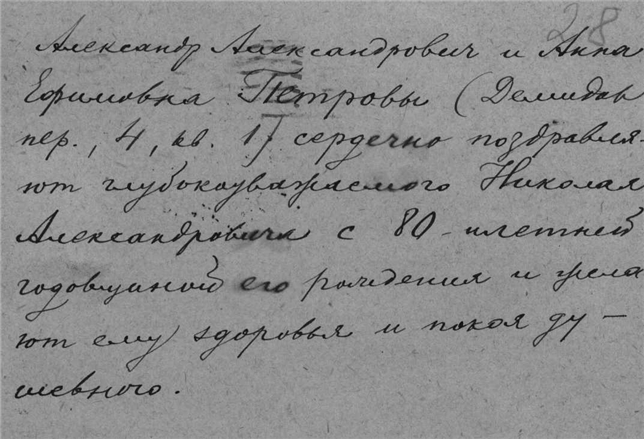 28
Александр Александрович и Анна
Ефимовна Петровы (Демидов
пер., 4, кв. 17) сердечно поздравля-
ют глубокоуважаемого Николая
Александровича с 80-летней
годовщиной его рождения и жела
ют ему здоровья и покоя ду-
шевного.